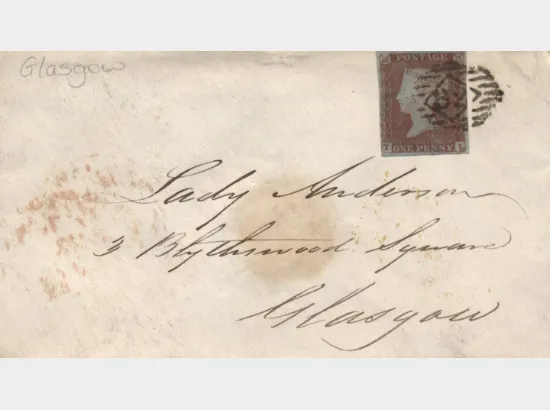 Glasgow
POSTAGE
ONE PENNY
Lady Anderson
3 Blythswood Square
Glasgow